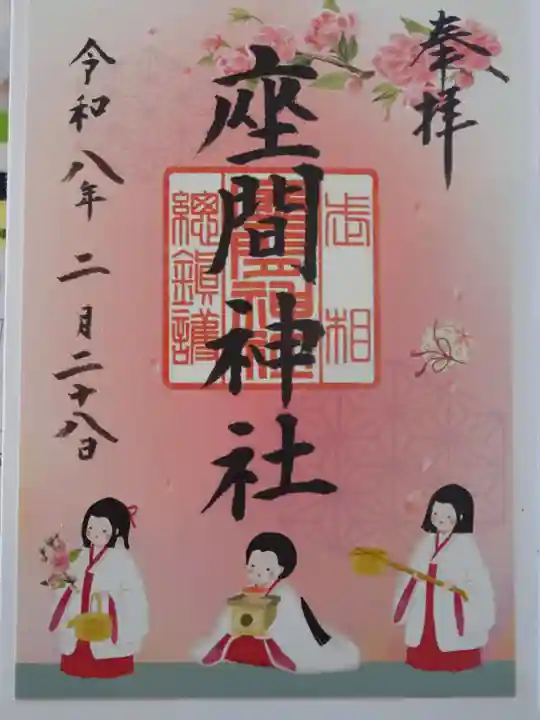 奉拝
座間神社
武相
座間神社
総鎮護
令和八年二月二十八日